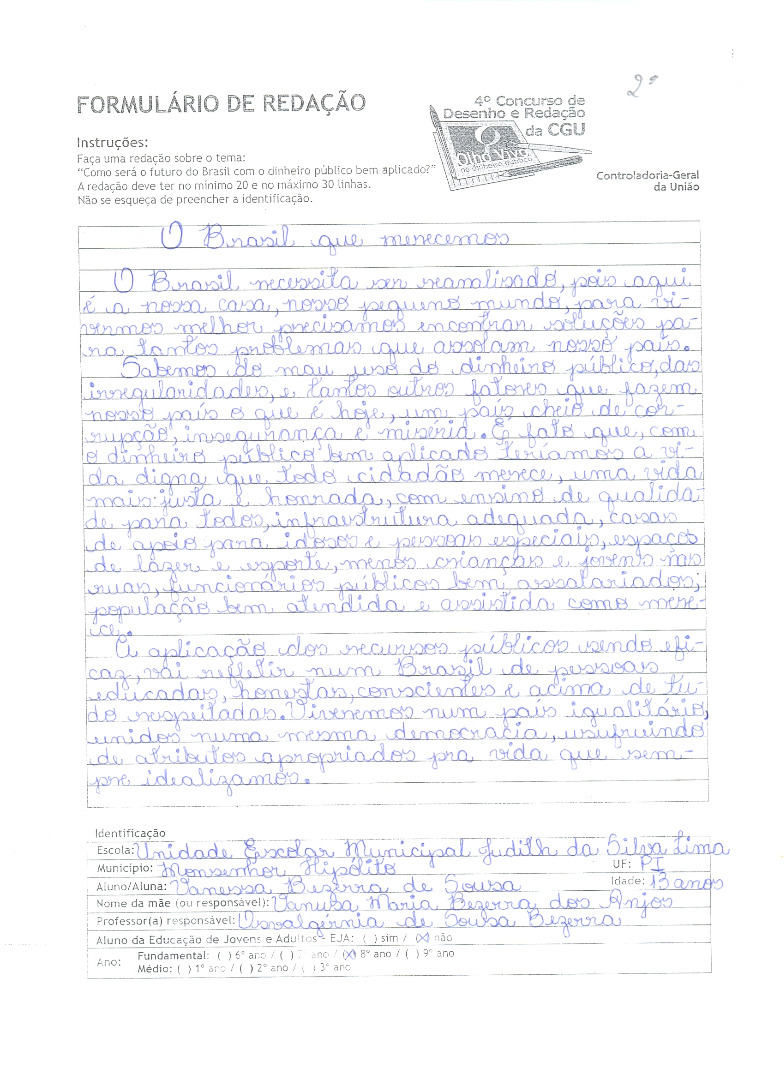 2º
FORMULÁRIO DE REDAÇÃO
4º Concurso de
Desenho e Redação
da CGU
Olho Vivo
no dinheiro público
Controladoria-Geral
da União
Instruções:
Faça uma redação sobre o tema:
"Como será o futuro do Brasil com o dinheiro público bem aplicado?"
A redação deve ter no mínimo 20 e no máximo 30 linhas.
Não se esqueça de preencher a identificação.
O Brasil que merecemos
O Brasil necessita ser reanalisado, pois aqui
é a nossa casa, nosso pequeno mundo, para vi-
vermos melhor precisamos encontrar soluções pa-
ra tantos problemas que assolam nosso país.
Sabemos do mau uso do dinheiro público, das
irregularidades, e tantos outros fatores que fazem
nosso país o que é hoje, um país cheio de cor-
rupção, insegurança e miséria. É fato que, com
o dinheiro público bem aplicado teríamos a vi-
da digna que todo cidadão merece, uma vida
mais justa e honrada, com ensino de qualida-
de para todos, infraestrutura adequada, casas
de apoio para idosos e pessoas especiais, espaços
de lazer e esporte, menos crianças e jovens nas
ruas, funcionários públicos bem assalariados;
população bem atendida e assistida como mere-
ce.
A aplicação dos recursos públicos sendo efi-
caz, vai refletir num Brasil de pessoas
educadas, honestas, conscientes e acima de tu-
do respeitadas. Viveremos num país igualitário,
unidos numa mesma democracia, usufruindo
de atributos apropriados pra vida que sem-
pre idealizamos.
Identificação
Escola: Unidade Escolar Municipal Judith da Silva Lima
Município: Monsenhor Hipólito UF: PI
Aluno/Aluna: Vanessa Bezerra de Sousa Idade: 13 anos
Nome da mãe (ou responsável): Vanusa Maria Bezerra dos Anjos
Professor(a) responsável: Osvalgérnia de Sousa Bezerra
Aluno da Educação de Jovens e Adultos - EJA: ( ) sim / (X) não
Ano: Fundamental: ( ) 6º ano / ( ) 7º ano / (X) 8º ano / ( ) 9º ano
Médio: ( ) 1º ano / ( ) 2º ano / ( ) 3º ano